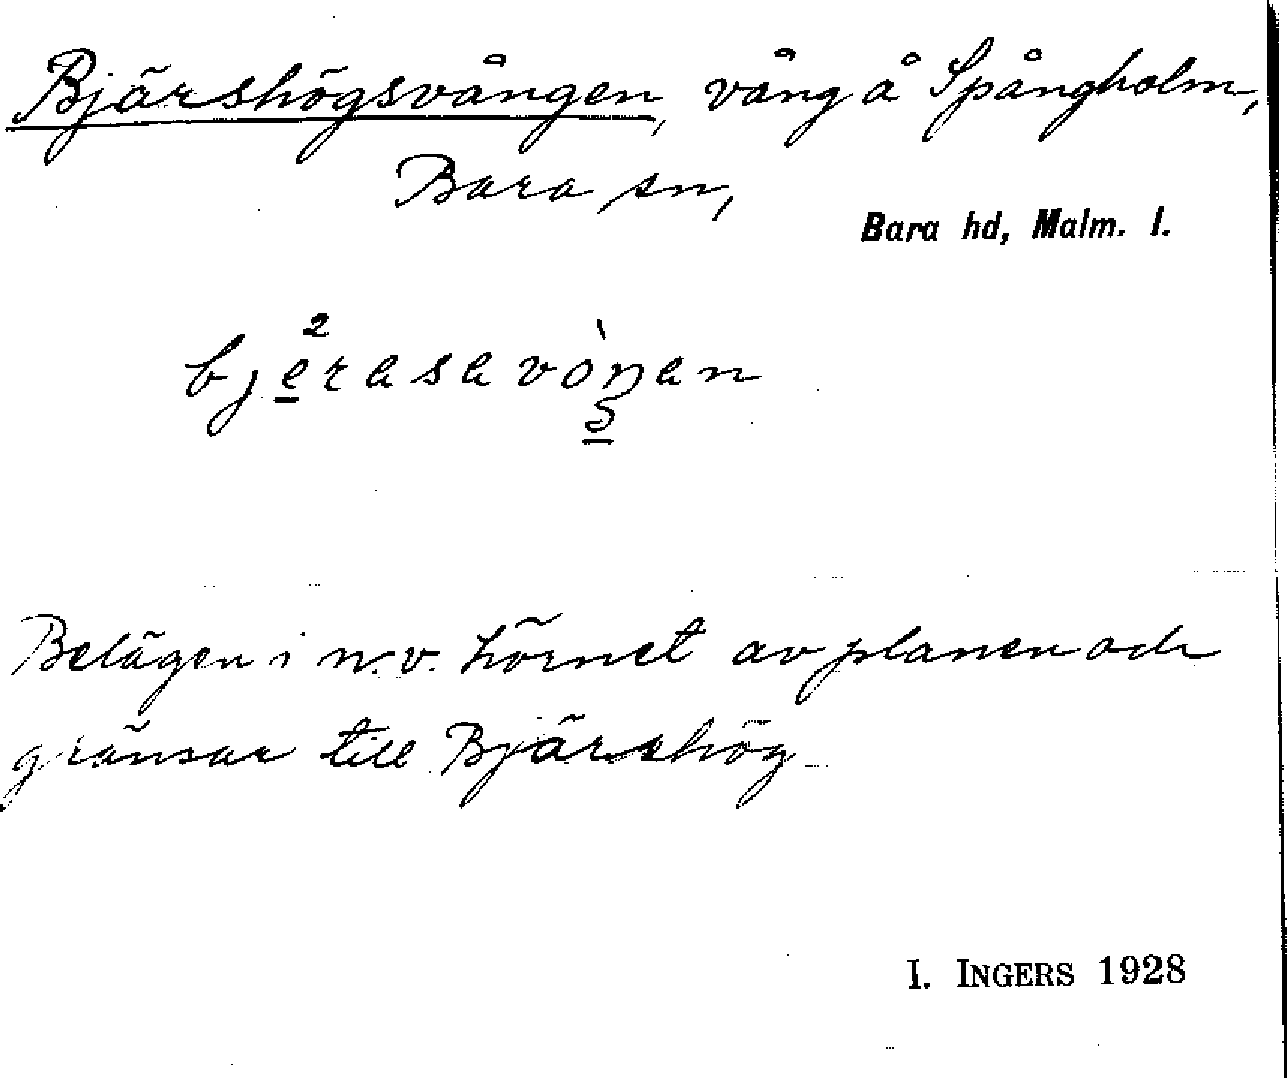 Bjärshögsvången, vång å Spångholm,
Bara sn,
Bara hd, Malm. l.
Belägen i n.v. hörnet av planen och
gränsar till Bjärshög
I. INGERS 1928